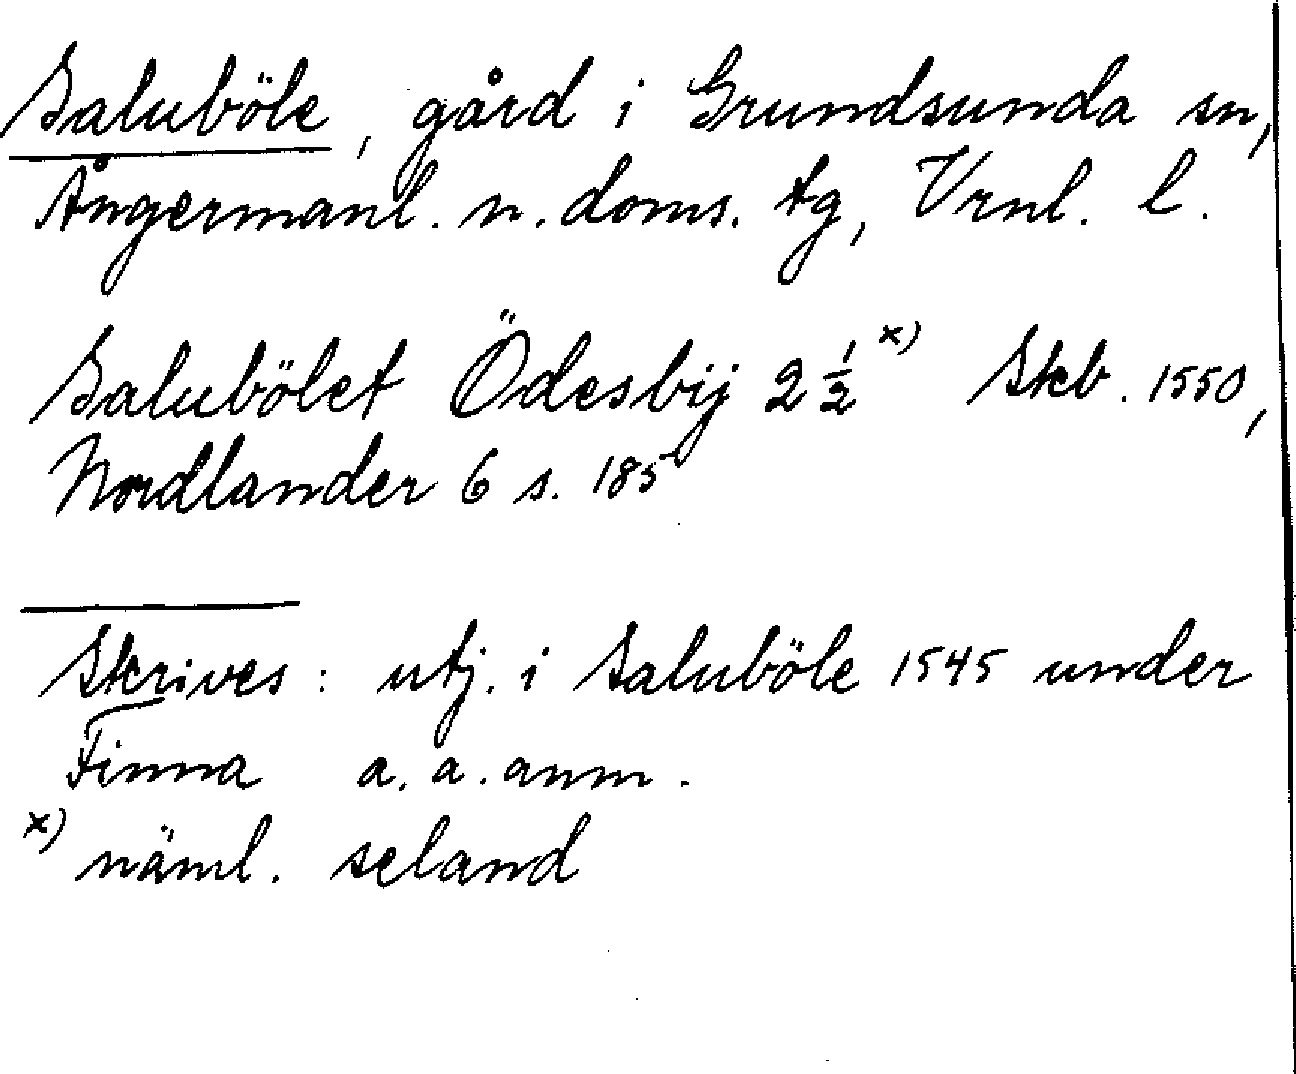 Saluböle, gård i Grundsunda sn,
Ångermanl. n. doms. tg, Vrnl. l.
Salubölet Ödesbij 2 ½ x) Skb. 1550,
Nordlander 6 s. 185
Skrives: utj. i Saluböle 1545 under
Finna a. a. anm.
x) näml. seland